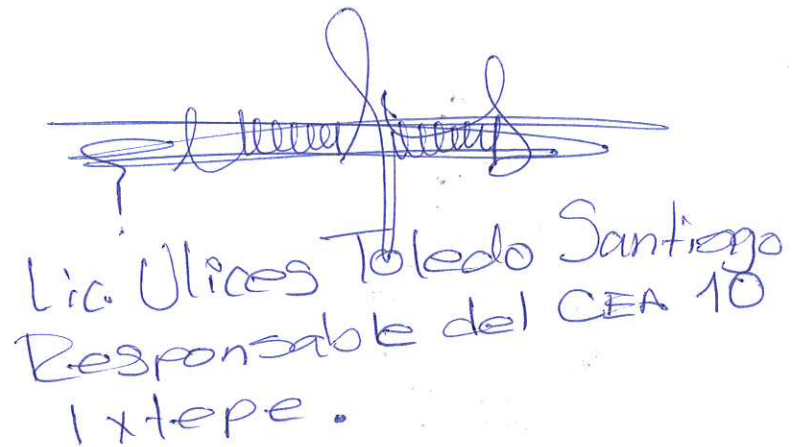 Lic. Ulices Toledo Santiago
Responsable del CEA 10
Ixtepe.